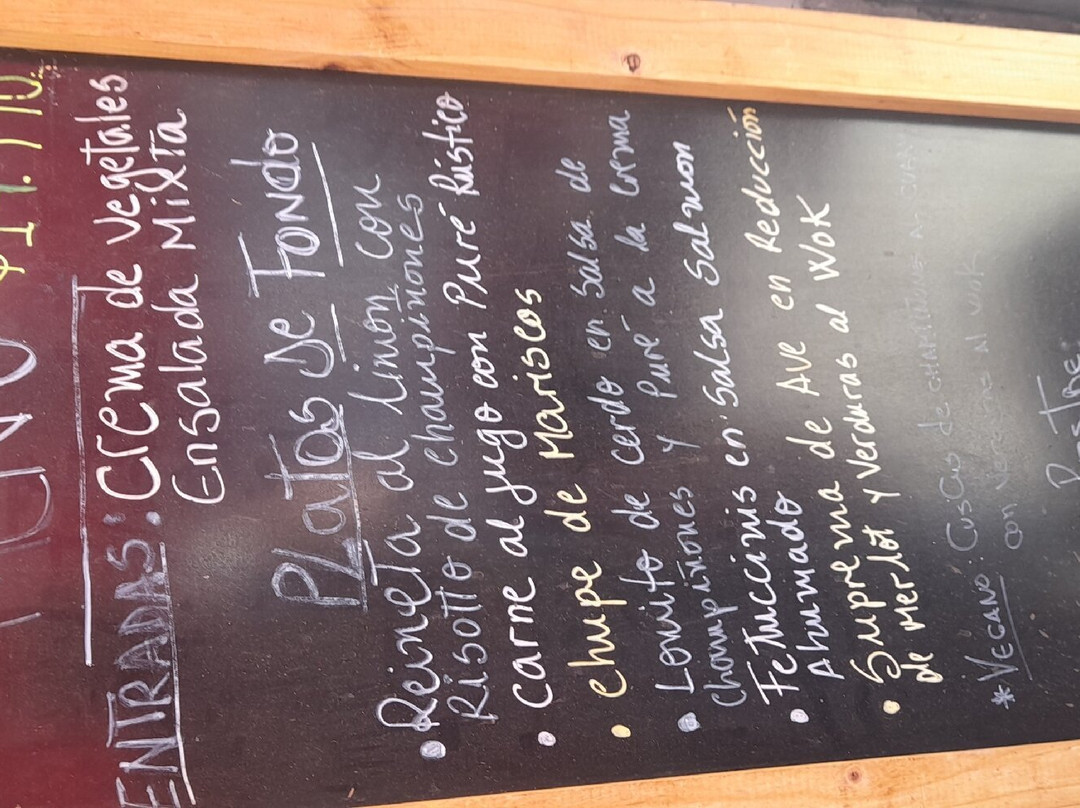 ENTRADAS: Crema de Vegetales
Ensalada Mixta
PLatos De Fondo
• Reineta al limon con
Risotto de champiñones
• carne al jugo con Puré Rústico
• chupe de Mariscos
• Lomito de cerdo en salsa de
champiñones y Puré a la crema
• Fetuccinis en Salsa Salmon
Ahumado
• Suprema de Ave en Reducción
de Merlot y Verduras al Wok
* VEGANO: Cuscus de
con al Wok
Postre: